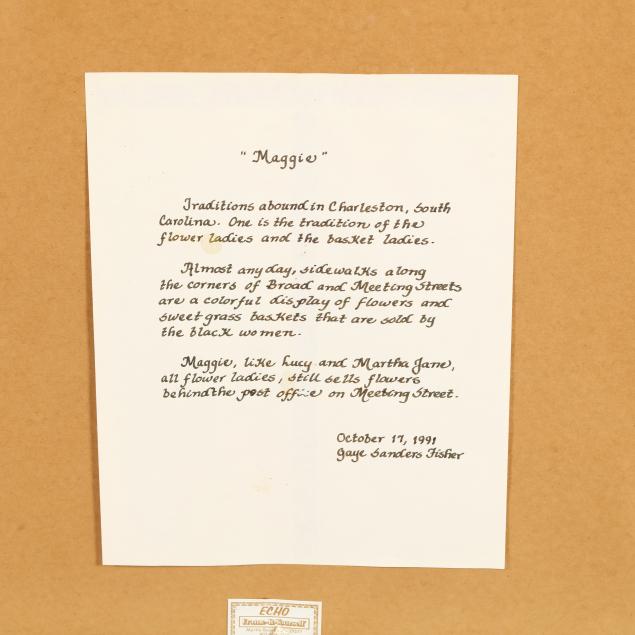 "Maggie"
Traditions abound in Charleston, South
Carolina. One is the tradition of the
flower ladies and the basket ladies.
Almost any day, sidewalks along
the corners of Broad and Meeting Streets
are a colorful display of flowers and
sweet grass baskets that are sold by
the black women.
Maggie, like Lucy and Martha Jane,
all flower ladies, still sells flowers
behind the post office on Meeting Street.
October 17, 1991
Gaye Sanders Fisher
ECHO
Frame-It-Yourself